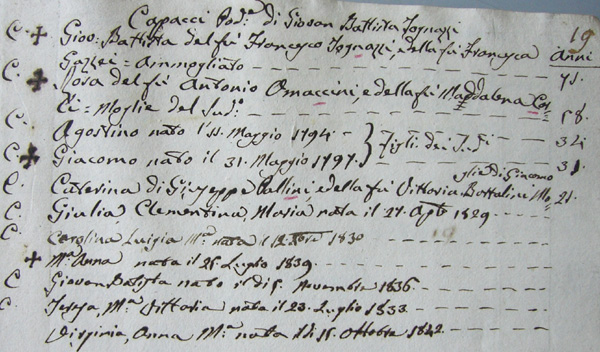 Capacci Pod.e di Giovan Battista Fognazzi 19
C. Giov: Battista del fù Francesco Fognazzi, e della fù Francesca Anni
Gazzei = Ammogliato 71.
C. Rosa del fù Antonio Omaccini, e della fù Maddalena Cor=
ti = Moglie del Sud.o 58.
C. Agostino nato l'11. Maggio 1794 Figli dei Sudi 34
C. Giacomo nato il 31. Maggio 1797. 31.
glie di Giacomo
C. Caterina di Giuseppe Pallini, e della fù Vittoria Bottalini Mo 21.
C. Giulia, Clementina, Maria nata il 27. Apte 1829
C. Carolina Luigia Ma. nata il 1830
Ma. Anna nata il 25 Luglio 1839.
C. Giovan Batista nato il di 5. Novembre 1836.
C. Teresa, Ma. Vittoria nata il 23. Luglio 1833.
Virginia, Anna Ma. nata li 15. Ottobre 1842